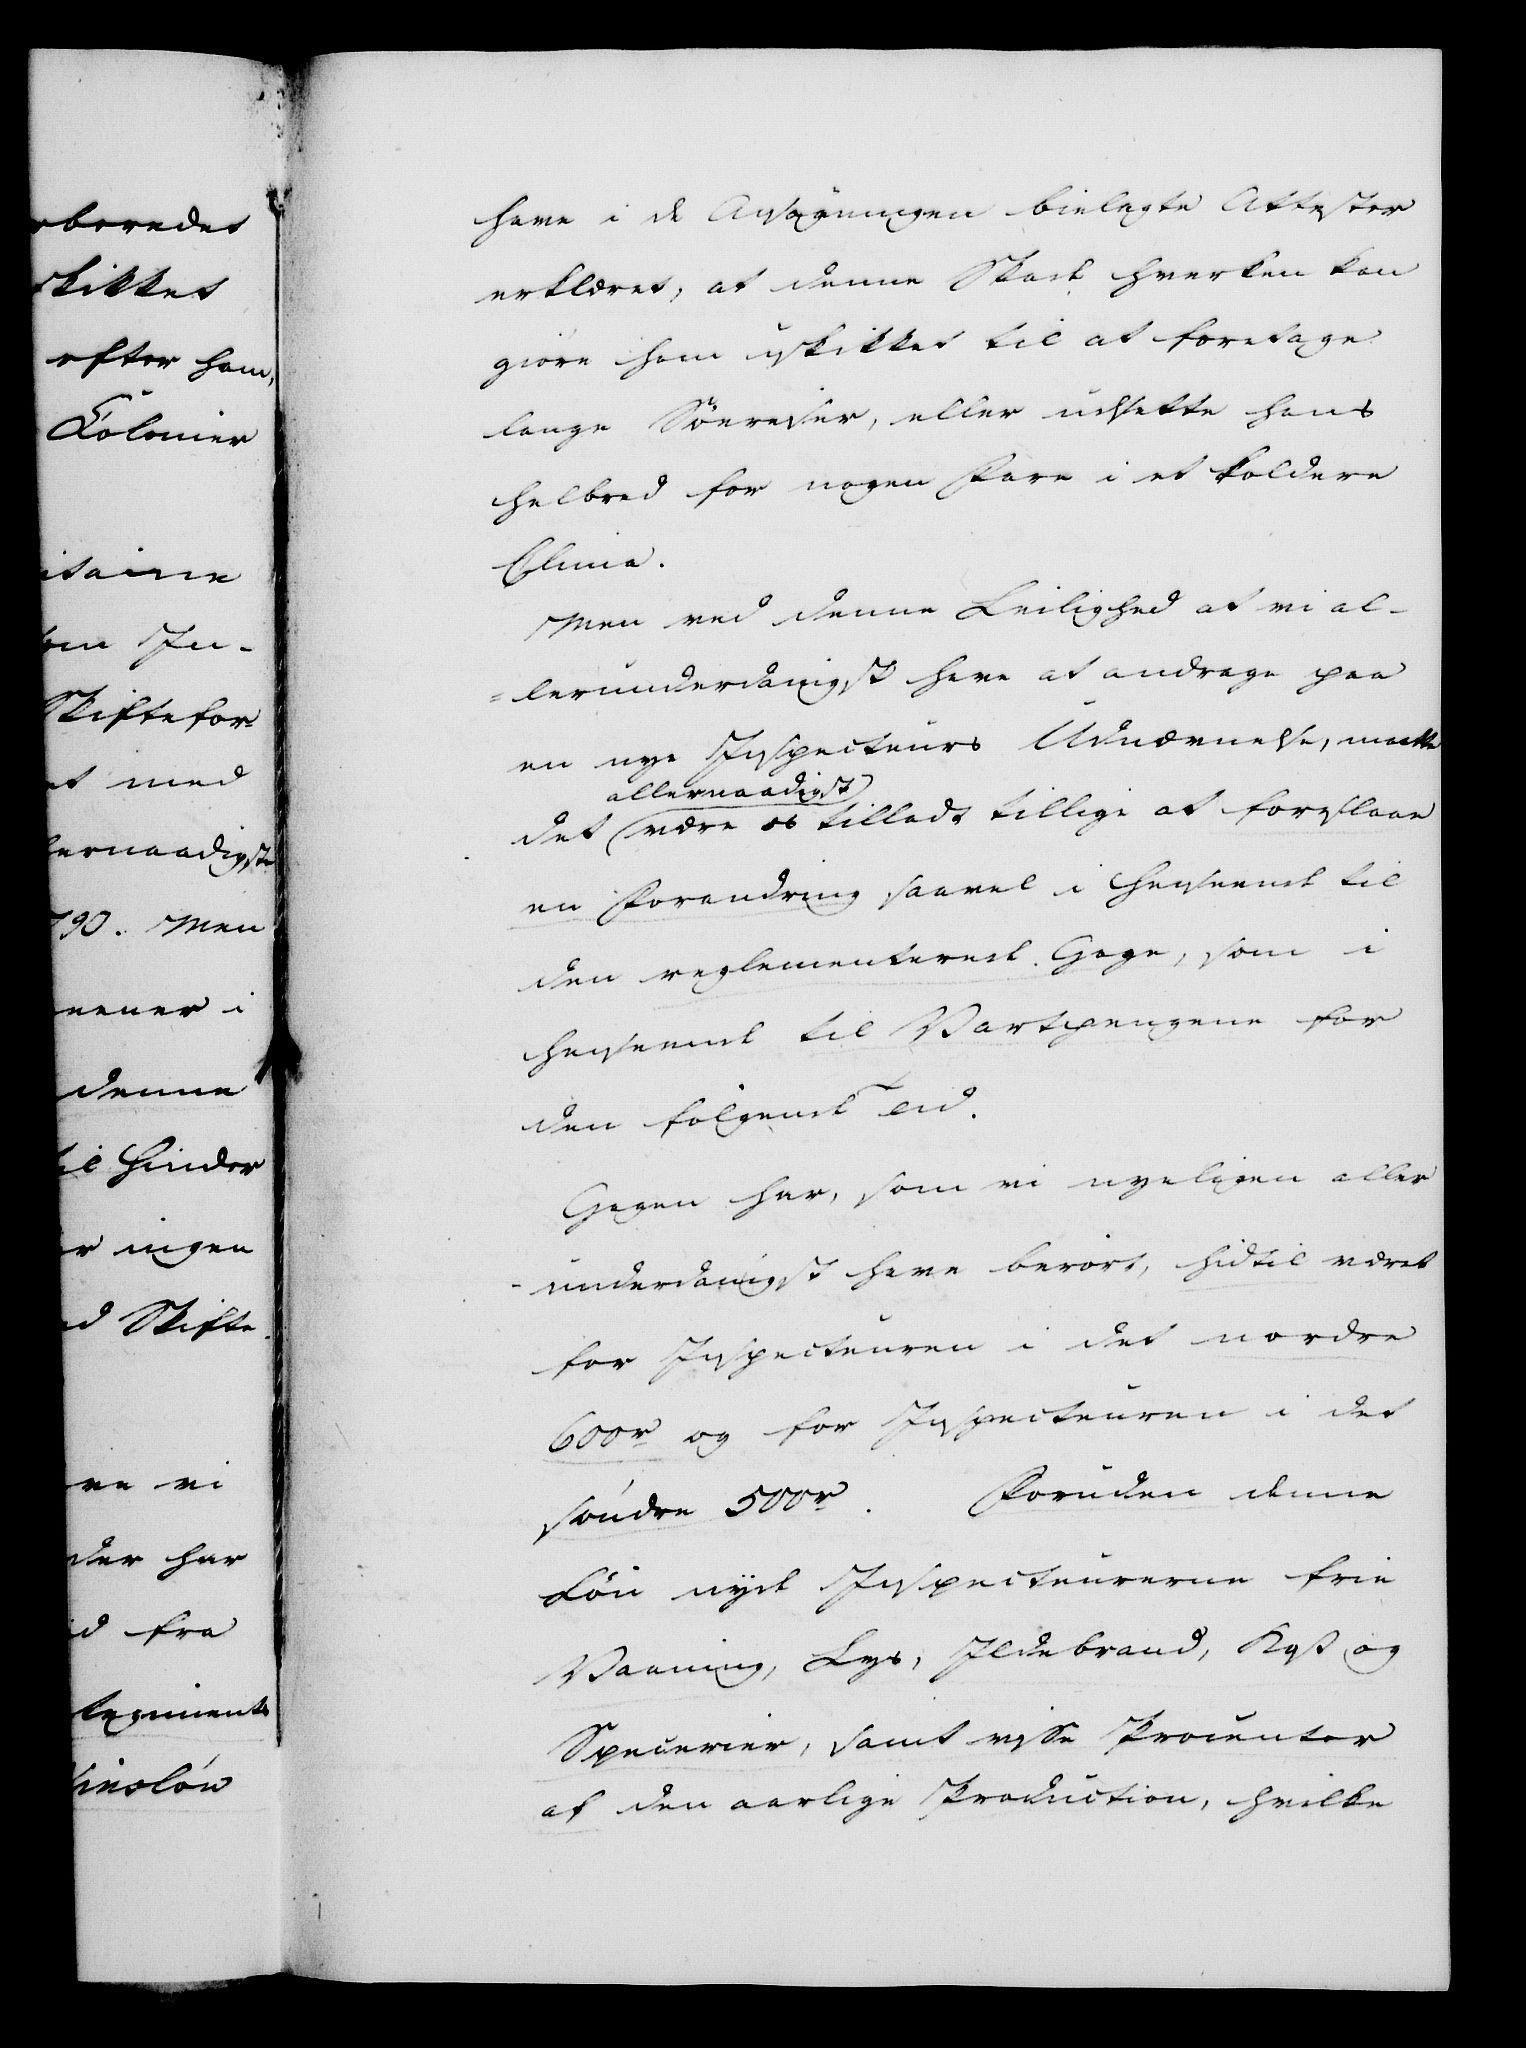 rboredet
skikket
efter ham,
Colonier
itaine
om In-
Skiftefor-
et med
lernaadigste
790. Men
meener i
denne
til Hinder
er ingen
ed Skifte-
ve vi
der har
d fra
Regiments
Winsløw
have i de Ansøgningen bielagte Attester
erklæret, at denne Skade hverken kan
giöre ham uskikket til at foretage
lange Söereiser, eller udsætte hans
Helbred for nogen Fare i et koldere
Clima.
Men ved denne Leilighed at vi al-
-lerunderdanigst have at andrage paa
en nye Inspecteurs Udnævnelse, maatte
allernaadigst
det være os tilladt tillige at foreslaae
en Forandring saavel i Henseende til
den reglementerede Gage, som i
Henseende til Vartpengene for
den følgende Tid.
Gagen har, som vi nyeligen aller
-underdanigst have berört, hidtil været
for Inspecteuren i det nordre
600r og for Inspecteuren i det
söndre 500r. Foruden denne
Lön nyde Inspecteurerne frie
Vaaning, Lys, Ildebrand, Kost og
Specerier, samt visse Procenter
af den aarlige Production, hvilke